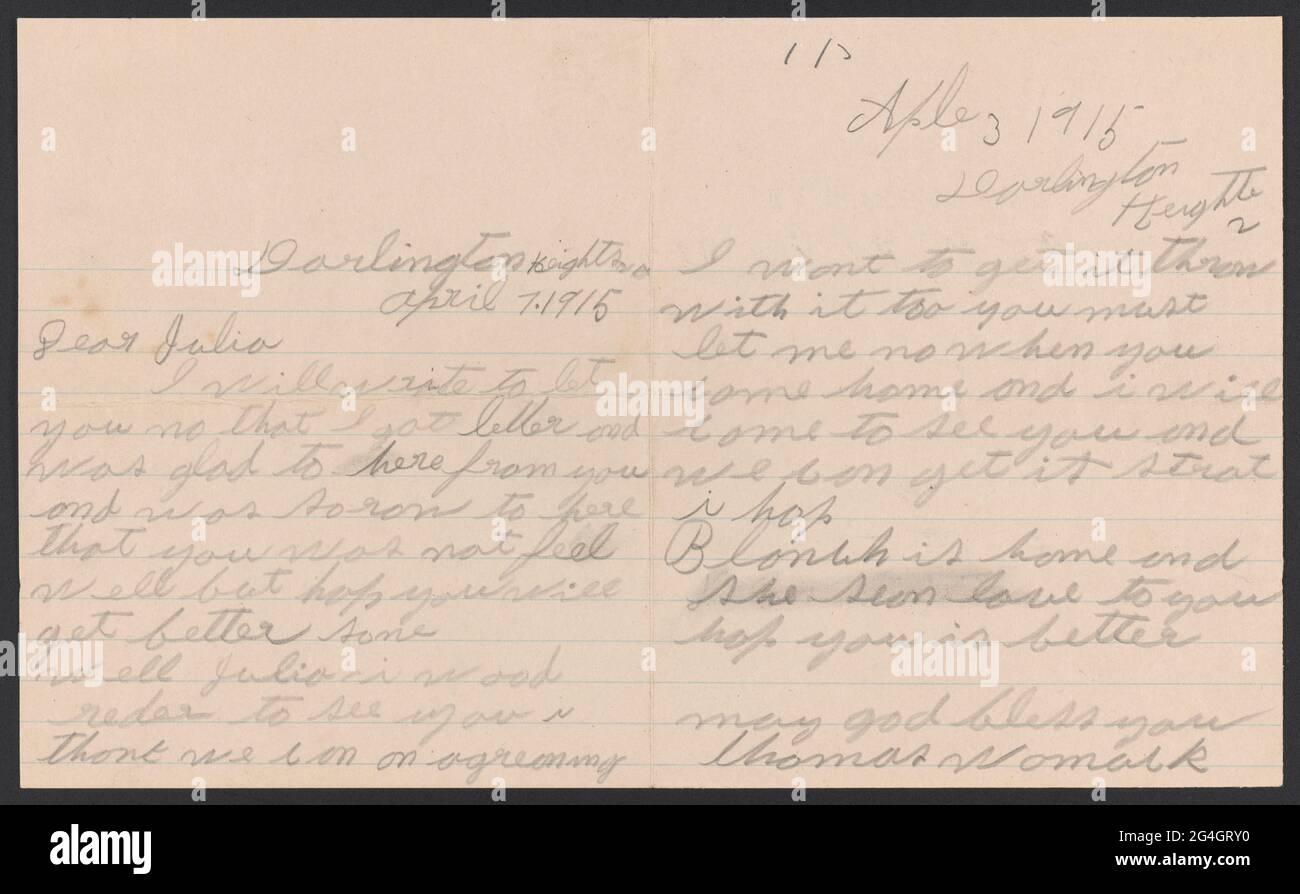 Darlington Heights va
april 7.1915
Dear Julia
I will write to let
you no that I got letter and
was glad to here from you
and was soron to here
that you was not feel
well but hop you will
get better sone
well Julia i wood
reder to see you i
thont we can on agreaning
11
Aple 3 1915
Darlington
Heights
2
I wont to get it throw
with it too you must
let me no when you
come home and i will
come to see you and
we con get it strat
i hop
Blonch is home and
she seon love to you
hop you is better
may god bless you
thomas Womack
alamy
Image ID: 2G4GRY0
www.alamy.com